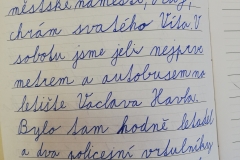 městské náměstí,
chrám svatého Víta. V
sobotu jsme jeli nejprve
metrem a autobusem na
letiště Václava Havla.
Bylo tam hodně letadel
a dva policejní vrtulníky